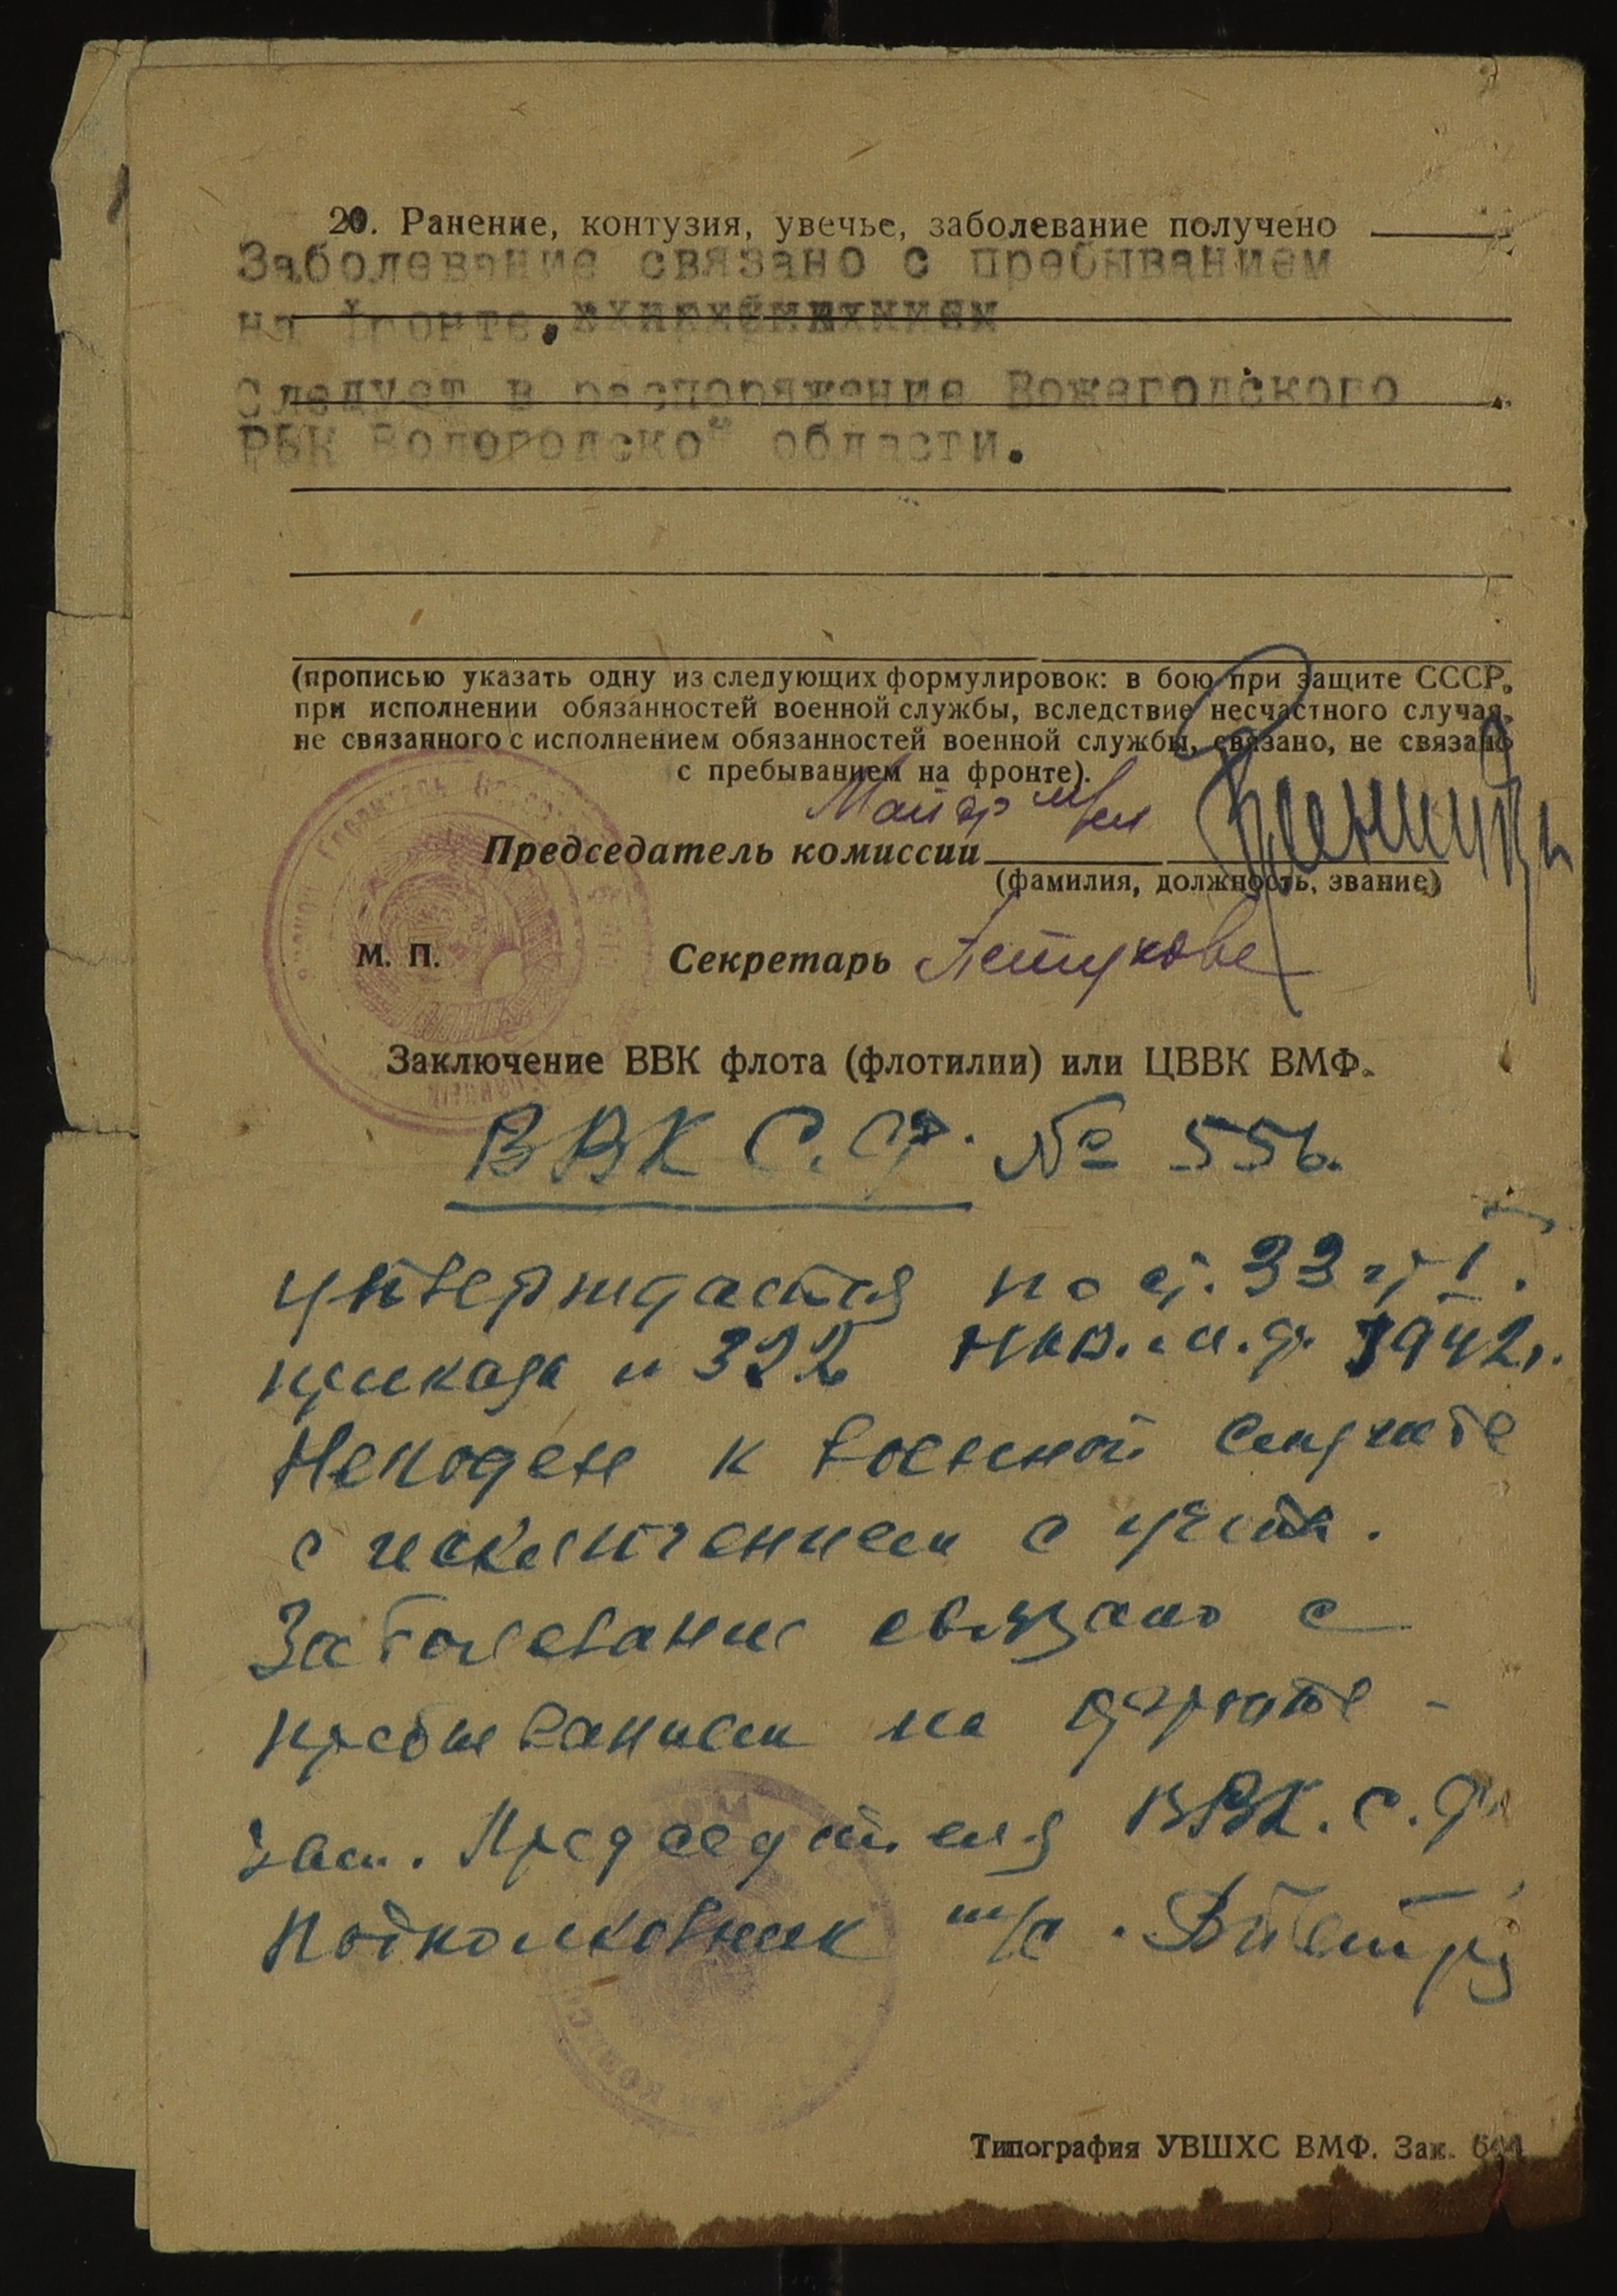 20. Ранение, контузия, увечье, заболевание получено
Заболевание связано с пребыванием
на фронте.
Следует в распоряжение Вожегодского
РВК Вологодской области.
(прописью указать одну из следующих формулировок: в бою при защите СССР,
при исполнении обязанностей военной службы, вследствие несчастного случая,
не связанного с исполнением обязанностей военной службы, связано, не связано
с пребыванием на фронте).
Майор м/сл
Председатель комиссии
(фамилия, должность, звание)
М. П. Секретарь Петухова
Заключение ВВК флота (флотилии) или ЦВВК ВМФ.
ВВК С.Ф. № 556.
утверждается по ст. 33 гр I.
приказа н 322 НКВ.м.ф. 1942г.
Негоден к военной службе
с исключением с учета.
Заболевание связано с
пребыванием на фронте -
Зам. Председателя ВВК. С. Ф.
Подполковник м/с.
Типография УВШХС ВМФ. Зак.